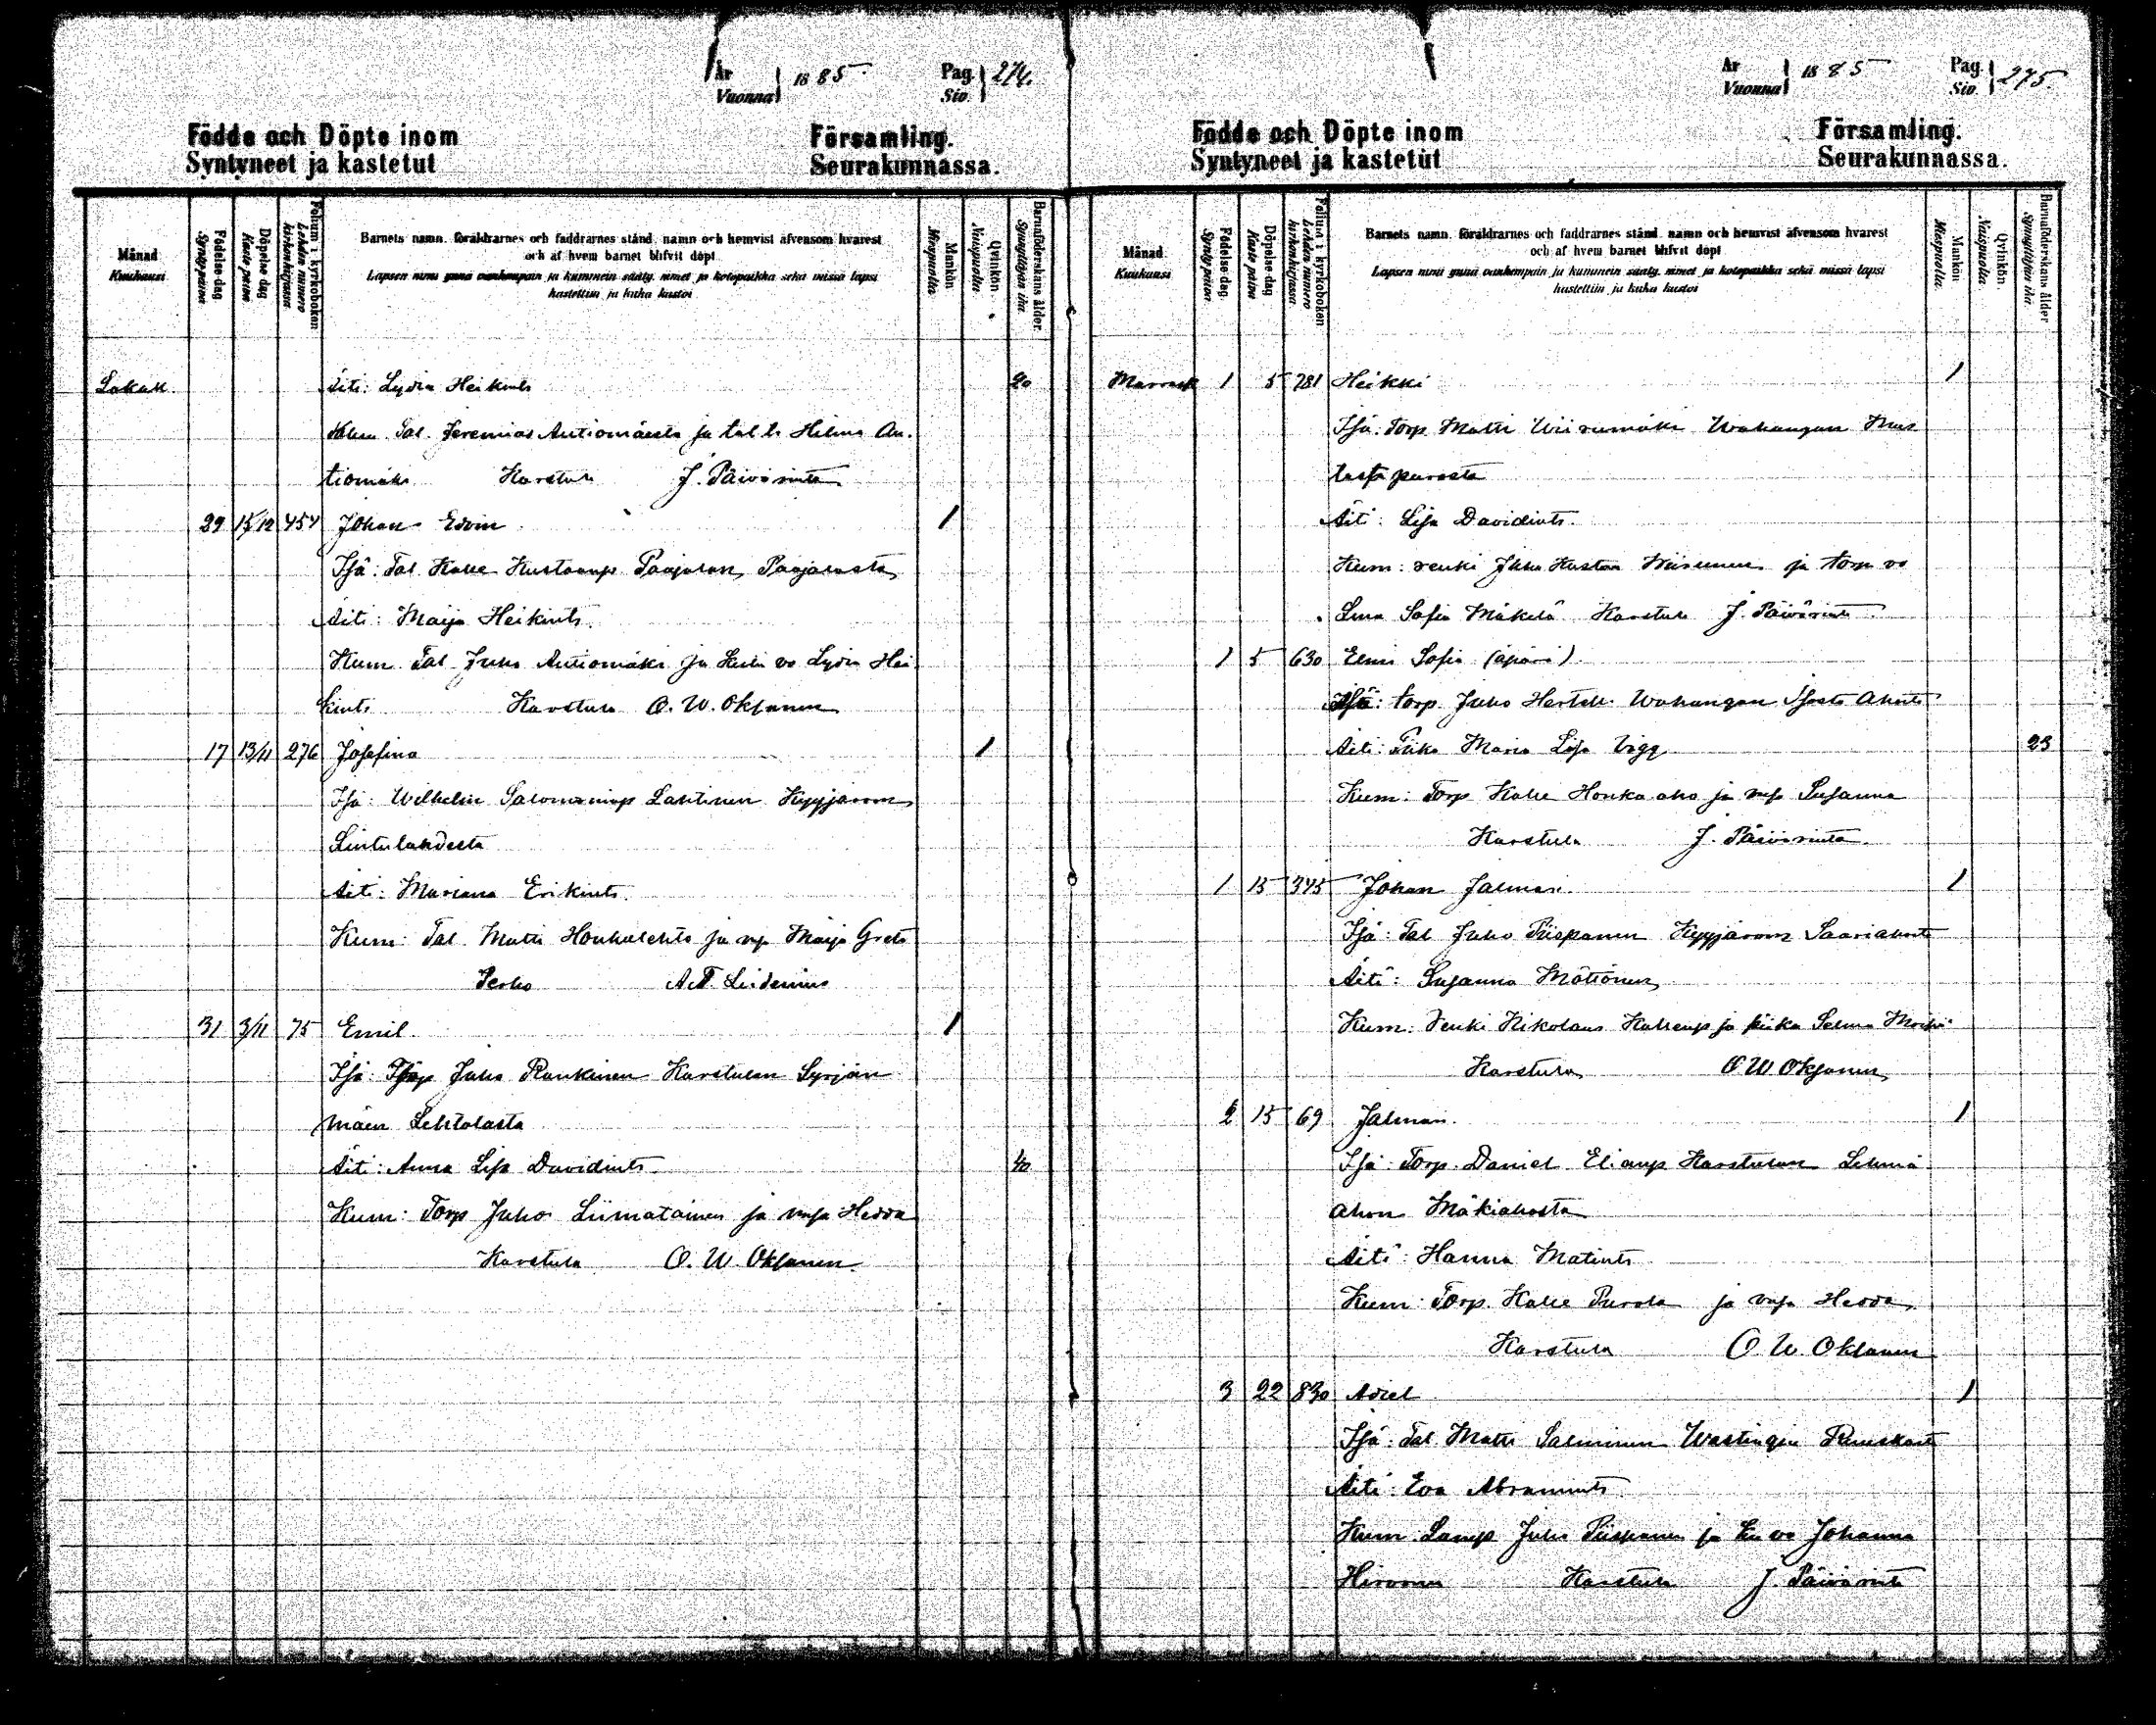 År
Vuonna 1885
Pag.
Siv. 274.
Födde och Döpte inom Församling.
Syntyneet ja kastetut Seurakunnassa.
Månad
Kuukausi
Födelse dag
Synty päivä
Döpelse dag
Kaste päivä
Folium i kyrkoboken
Lehden numero kirkonkirjassa
Barnets namn, föräldrarnes och faddrarnes stånd, namn och hemvist äfvensom hvarest
och af hvem barnet blifvit döpt
Lapsen nimi ynnä vanhempain ja kummein sääty, nimet ja kotopaikka sekä missä lapsi
kastettiin ja kuka kastoi
Mankön
Miespuolia
Qvinkön
Naispuolia
Barnaföderskans ålder
Synnyttäjän ikä
Lokak. Äiti: Lydia Heikints 20
Kum. Tal. Jeremias Autiomäestä ja tal. tr Hilma Au-
tiomäki Karstula J. Päivärinta
29 15/12 454 Johan Edvin 1
Isä: Tal. Kalle Kustaanp Paajalan Paajalasta
Äiti: Maija Heikints.
Kum. Tal. Juho Autiomäki ja Lydia Hei
kints Karstula O. W. Oksanen
17 13/11 276 Josefina 1
Isä: Wilhelm Salomoninp Lahtinen Kyyjärven
Lintulahdesta
Äiti: Mariana Erikints.
Kum: Tal. Matti Honkalehto ja vp Maija Greta
Perho A. F. Leidenius
31 3/11 75 Emil 1
Isä: Juho Rankinen Karstulan Syrjän
mäen Lehtolasta
Äiti: Anna Lisa Davidints 40
Kum: Torp Juho Liimatainen ja vmsa Hedda
Karstula O. W. Oksanen.
År
Vuonna 1885
Pag.
Siv. 275.
Födde och Döpte inom Församling.
Syntyneet ja kastetut Seurakunnassa.
Månad
Kuukausi
Födelse dag
Synty päivä
Döpelse dag
Kaste päivä
Folium i kyrkoboken
Lehden numero kirkonkirjassa
Barnets namn, föräldrarnes och faddrarnes stånd, namn och hemvist äfvensom hvarest
och af hvem barnet blifvit döpt
Lapsen nimi ynnä vanhempain ja kummein sääty, nimet ja kotopaikka sekä missä lapsi
kastettiin ja kuka kastoi
Mankön
Miespuolia
Qvinkön
Naispuolia
Barnaföderskans ålder
Synnyttäjän ikä
Marrask 1 5 781 Heikki 1
Isä: Torp. Matti Wiirumäki Wahangan Mus
tastapurosta
Äiti: Lisa Davidints.
Kum: renki Juho Kustaa ja torp vo
Lena Sofia Mäkelä Karstula J. Päivärinta
1 5 630 Elmi Sofia (äpärä)
Isä: torp. Juho Wahangan
Äiti: Piika Maria Lisa Vigg 23
Kum: Torp Kalle Honkaaho ja vmsa Susanna
Karstula J. Päivärinta.
1 15 345 Johan Jalmari. 1
Isä: Tal Juho Piispanen Kyyjärven Saariahosta
Äiti: Susanna Mätiönen
Kum: Renki Nikolaus Kallenp ja piika Selma
Karstula O W Oksanen
2 15 69 Jalmari. 1
Isä: Torp. Daniel Elianp Karstulan Lehmä
ahon Mäkiahosta
Äiti: Hanna Matints
Kum: Torp. Kalle Purola ja vmsa Hedda
Karstula O. W. Oksanen
3 22 830 Adiel 1
Isä: Tal. Matti Salminen Wastingin Ruuskasta
Äiti: Eva Abramints
Kum. Juho Piispanen ja vo Johanna
Hirvonen Karstula J. Päivärinta